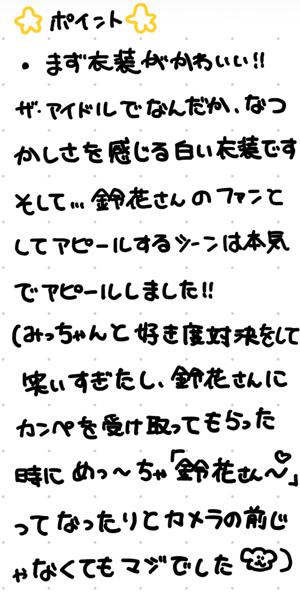 ポイント
・まず衣装がかわいい!!
ザ・アイドルでなんだか、なつ
かしさを感じる白い衣装です
そして…鈴花さんのファンと
してアピールするシーンは本気
でアピールしました!!
(みっちゃんと好き度対決をして
笑いすぎたし、鈴花さんに
カンペを受け取ってもらった
時にめっ〜ちゃ「鈴花さん〜♡」
ってなったりとカメラの前じ
ゃなくてもマジでした)